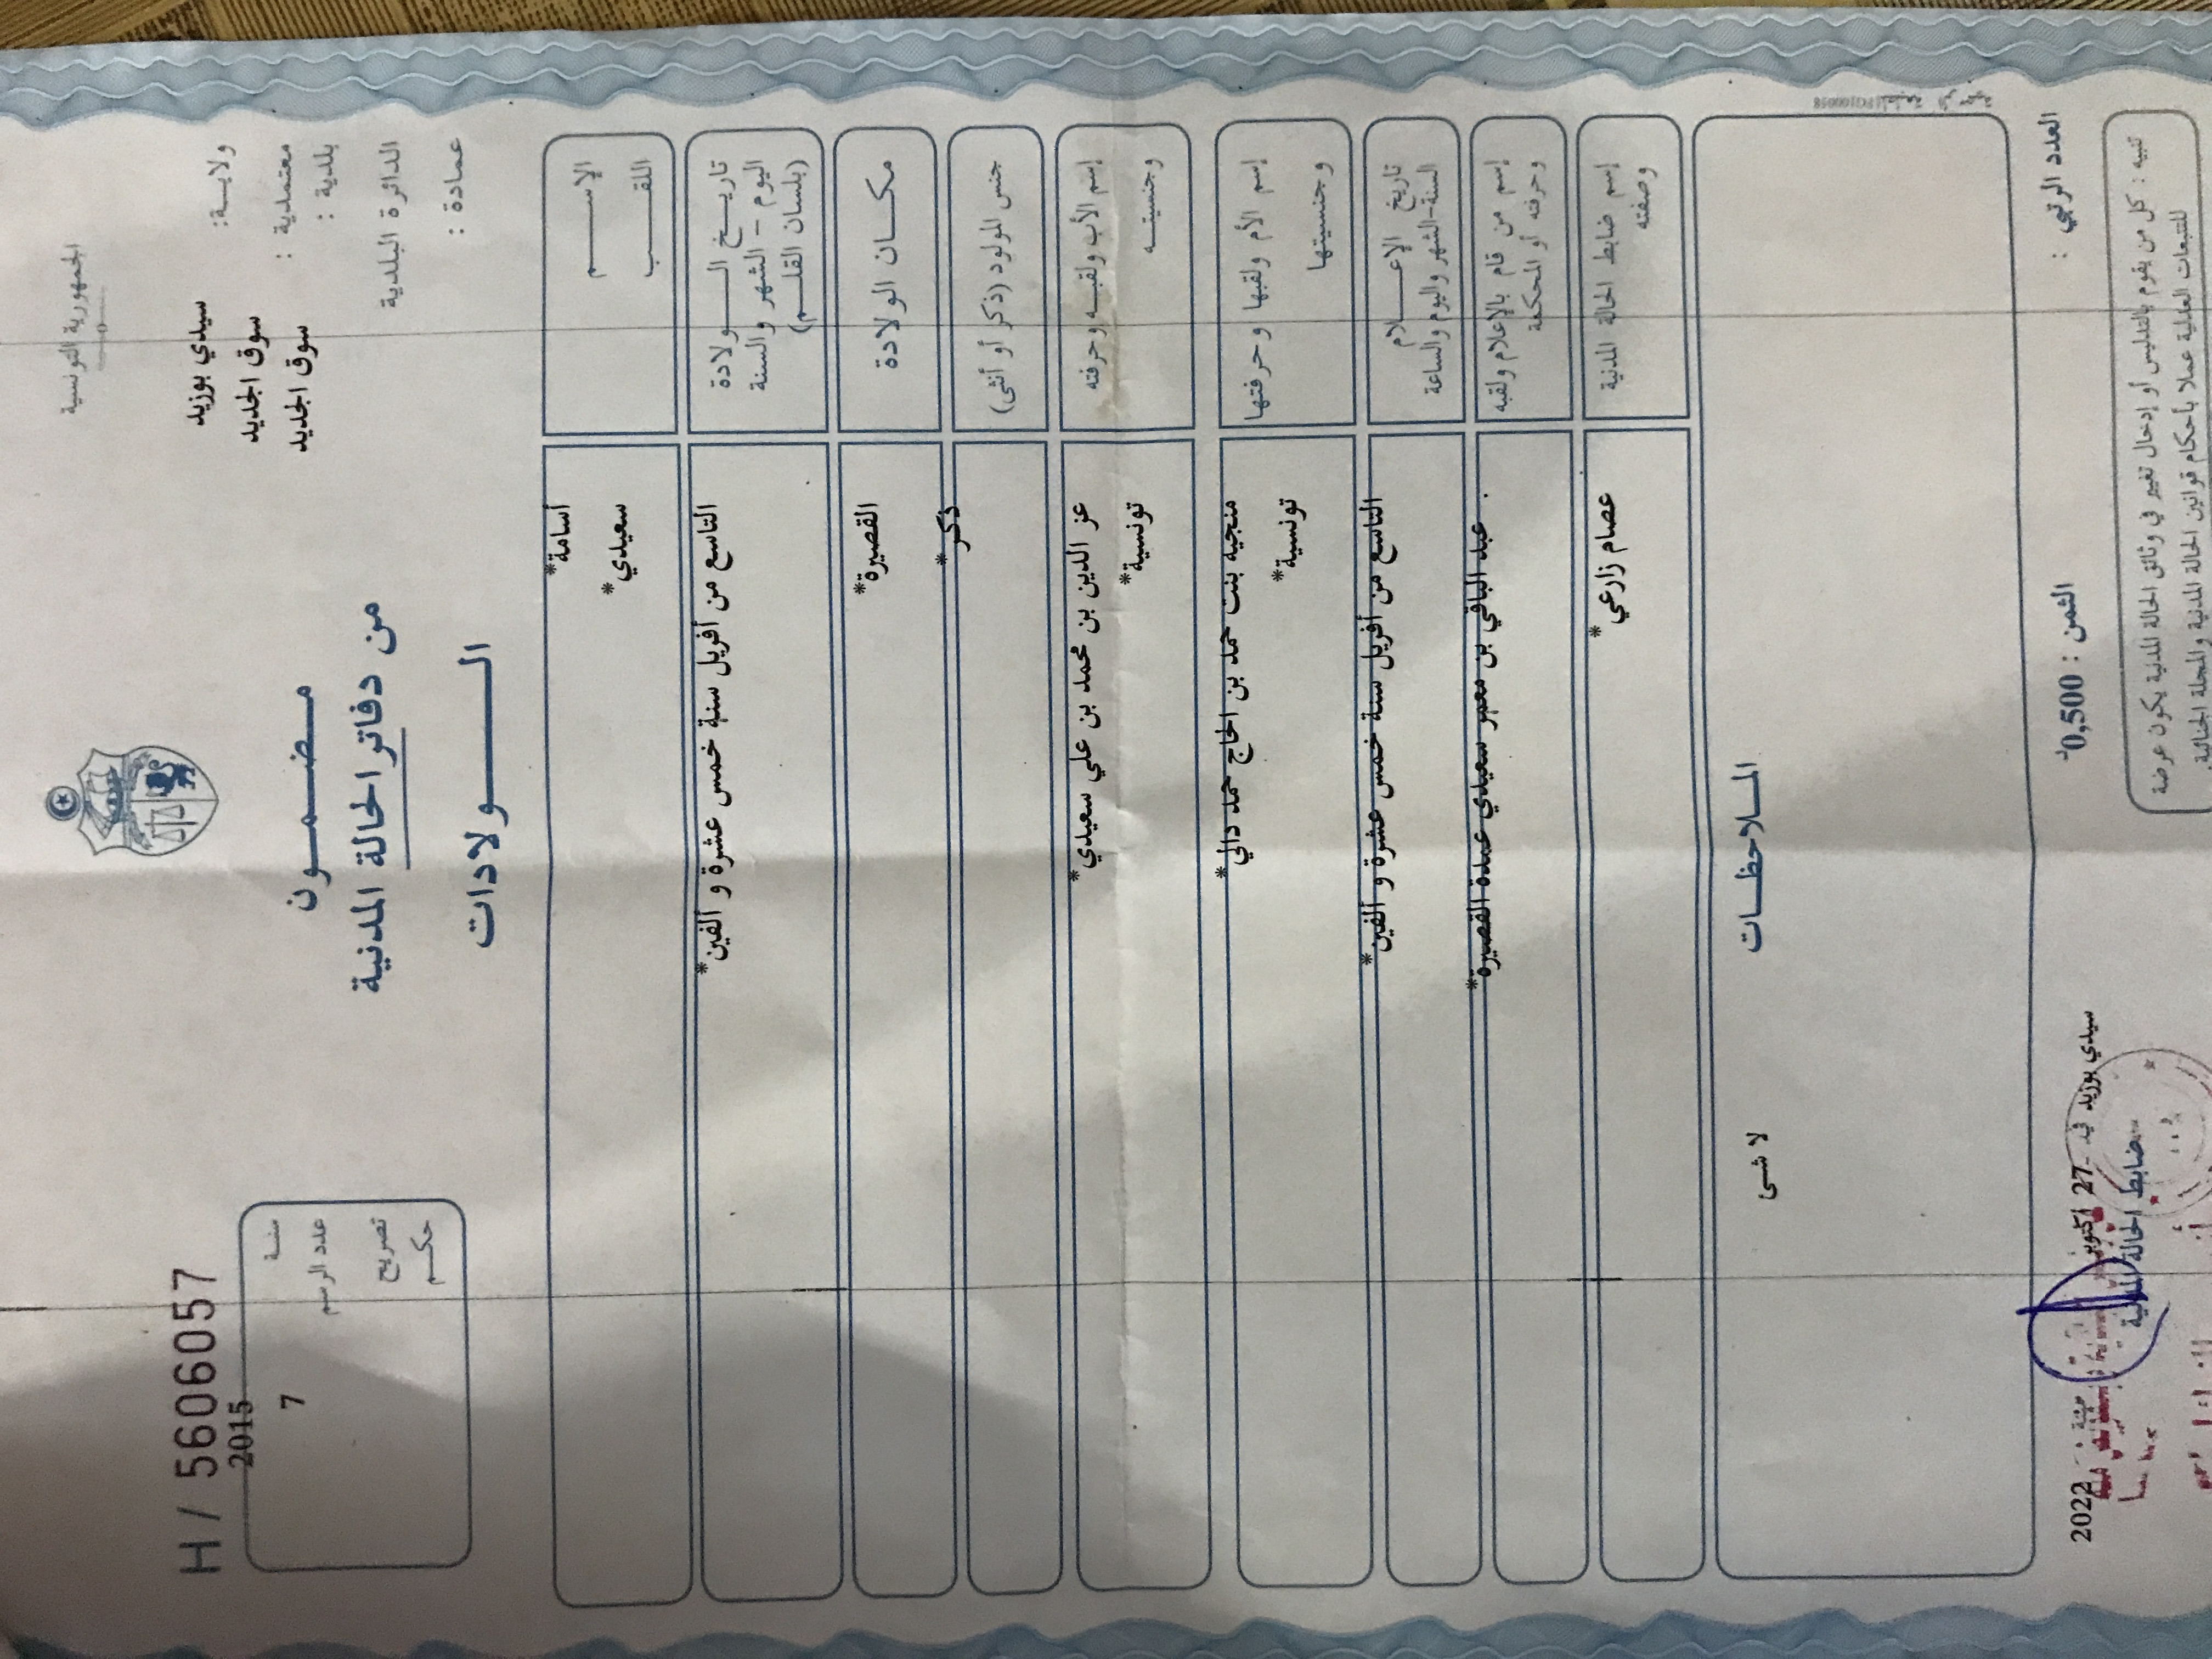 الجمهورية التونسية
ولايـــة: سيدي بوزيد
معتمدية : سوق الجديد
بلدية : سوق الجديد
الدائرة البلدية
عمادة :
مـضـمــون
من دفاتر الحالة المدنية
الــولادات
H / 5606057
سنة 2015
عدد الرسم 7
تصريح
حكم
الإســـم أسامة*
اللقـــب سعيدي*
تاريـــخ الـــولادة التاسع من أفريل سنة خمس عشرة و ألفين*
اليوم – الشهر والسنة
(بلسان القلـــم)
مكـــان الولادة القصيرة*
جنس المولود (ذكر أو أنثى) ذكر*
إسم الأب ولقبـــه وحرفته عز الدين بن محمد بن علي سعيدي*
وجنسيتـــه تونسية*
إسم الأم ولقبها وحرفتها منجيه بنت حمد بن الحاج حمد دالي*
وجنسيتها تونسية*
تاريخ الإعـــلام التاسع من أفريل سنة خمس عشرة و ألفين*
السنة-الشهر واليوم والساعة
إسم من قام بالإعلام ولقبه عبد الباقي بن معمر سعيدي عمدة القصيرة*
وحرفته أو المحكمة
إسم ضابط الحالة المدنية عصام زارعي*
وصفته
المـــلاحظـــات
لا شى
العدد الرتبي :
الثمن : 0,500د
سيدي بوزيد في 27 أكتوبر 2022
ضابط الحالة المدنية
تنبيه : كل من يقوم بالتدليس أو إدخال تغيير في وثائق الحالة المدنية يكون عرضة
للتتبعات العدلية عملا بأحكام قوانين الحالة المدنية والمجلة الجنائية.